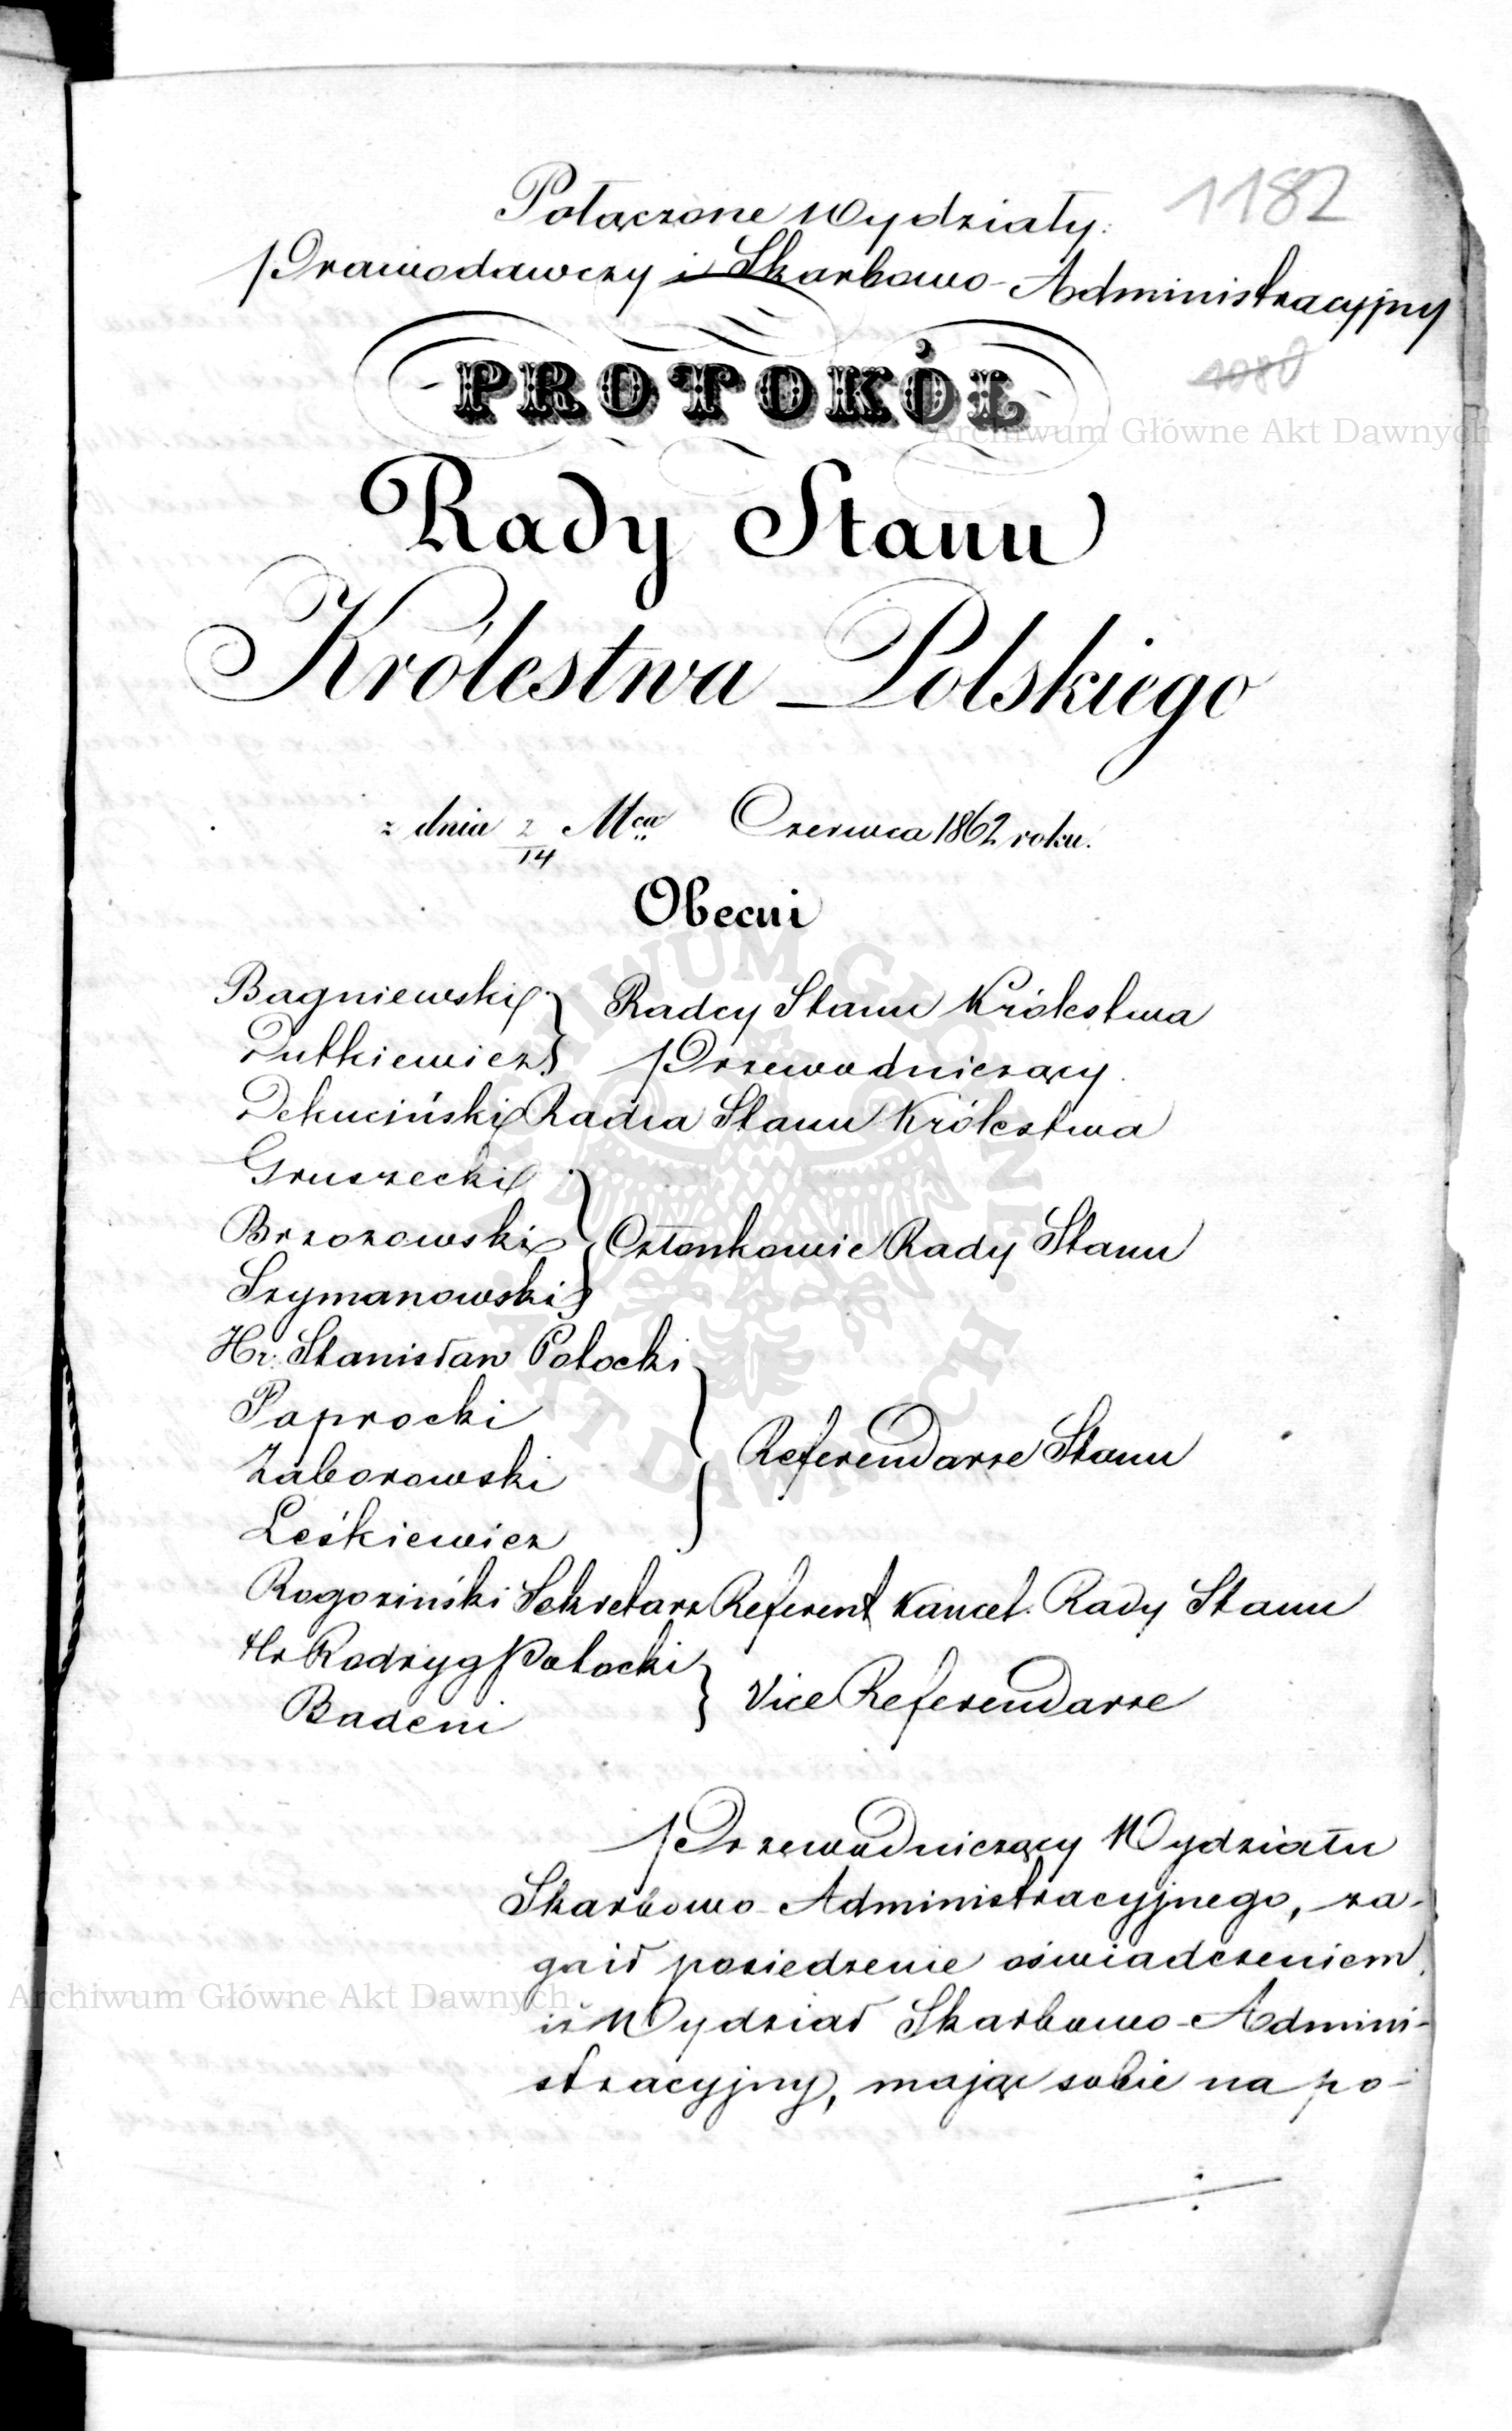 1182
Połączone Wydziały:
Prawodawczy i Skarbowo-Administracyjny
PROTOKÓŁ
1080
Archiwum Główne Akt Dawnych
Rady Stanu
Królestwa Polskiego
z dnia 2/14 Mca Czerwca 1862 roku.
Obecni
Bagniewski } Radcy Stanu Królestwa
Dutkiewicz } Przewodniczący.
Dekuciński Radca Stanu Królestwa
Gruszecki
Brzozowski } Członkowie Rady Stanu
Szymanowski
Hr. Stanisław Potocki
Paprocki
Zaborowski } Referendarze Stanu
Leśkiewicz
Rogoziński Sekretarz Referent Kancel. Rady Stanu
Hr Rodryg Potocki } Vice Referendarze
Badeni
Przewodniczący Wydziału
Skarbowo-Administracyjnego, za-
gaił posiedzenie oświadczeniem,
iż Wydział Skarbowo-Admini-
stracyjny, mając sobie na po-
Archiwum Główne Akt Dawnych
ARCHIWUM GŁÓWNE AKT DAWNYCH